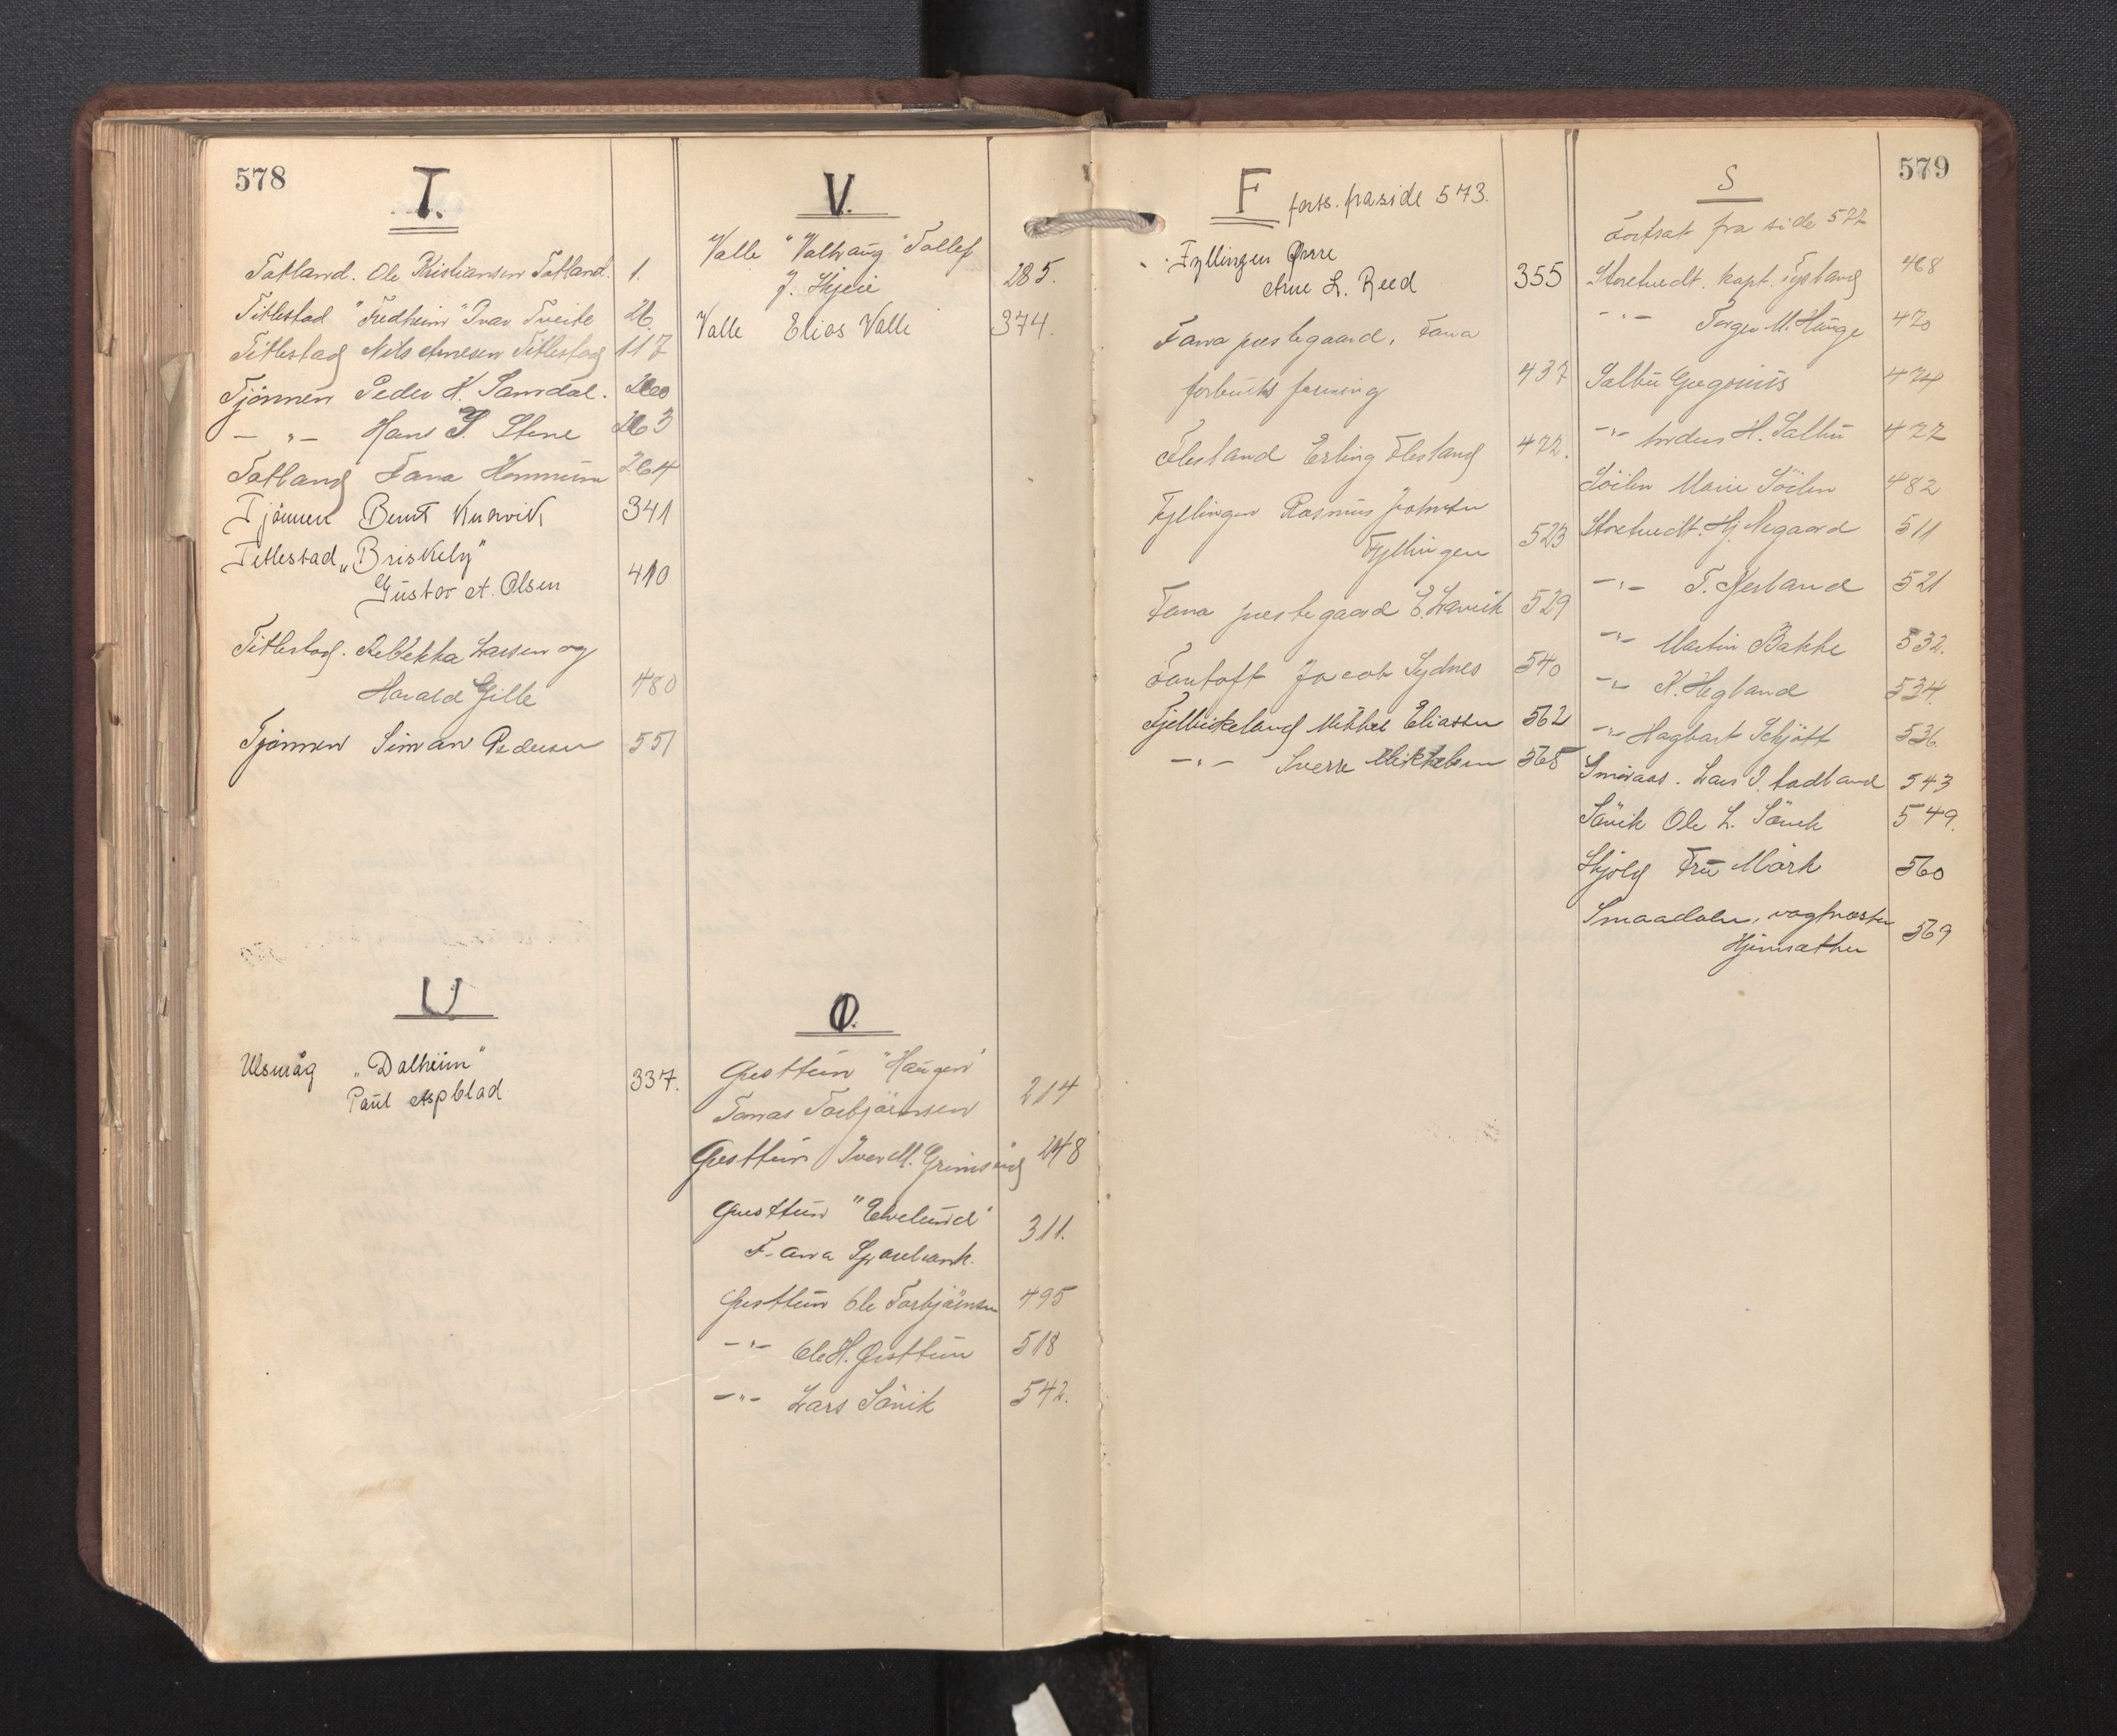 578
T.
Totland. Ole Kristiansen Totland. 1.
Titlestad "Fredheim" Ivar Tveite 26
Titlestad Nils Arnesen Titlestad 117
Tjönnen Peder K. Samdal. 260
— „ — Hans S. Stene 263
Totland Fana Kommune 264
Tjönnen Bernt Knarvik 341
Titlestad „Briskely"
Gustav A. Olsen 410
Titlestad. Rebekka Larsen og
Harald Gille 480
Tjönnen Simon Pedersen 551
U
Ulsmåg „Dalheim"
Paul Aspblad 337.
V.
Valle "Valhaug" Tollef
J. Skjeie 285.
Valle Elias Valle 374.
Ø.
Øvsttun "Haugen"
Tomas Torbjörnsen 214
Øvsttun Iver M. Grimseid 248
Øvsttun "Elvelund"
Fana Sparebank. 311.
Øvsttun Ole Torbjörnsen 495
—„— Ole H. Øvsttun 518
—„— Lars Sövik 542.
F forts. fra side 573.
Fyllingen Øvre
Arne L. Reed 355
Fana prestegaard, Fana
forbruks forening 437
Flesland Erling Flesland 472.
Fyllingen Rasmus Johnsen
Fyllingen 523
Fana prestegaard E. Lavik 529
Fantoft Jacob Sydnes 540
Fjellbirkeland Mikkel Eliassen 562
— „ — Sverre Mikkelsen 568
579
S
Fortsat fra side 577
Storetvedt. Kapt. Fysland 468
— „ — Torger M. Hauge 470
Salbu Gregorius 474
—„— Anders H. Salbu 477
Söilen Marie Söilen 482
Storetvedt. Hj. Negaard 511
—„— T. Nesland 521
—„— Martin Bakke 532.
—„— K. Hegland 534.
—„— Hagbart Schjött 536
Smöraas. Lars I. Aadland 543
Sövik Ole L. Sövik 549.
Skjold Fru Mörk 560
Smaadalen, vagtmester
Hjemsæther 569